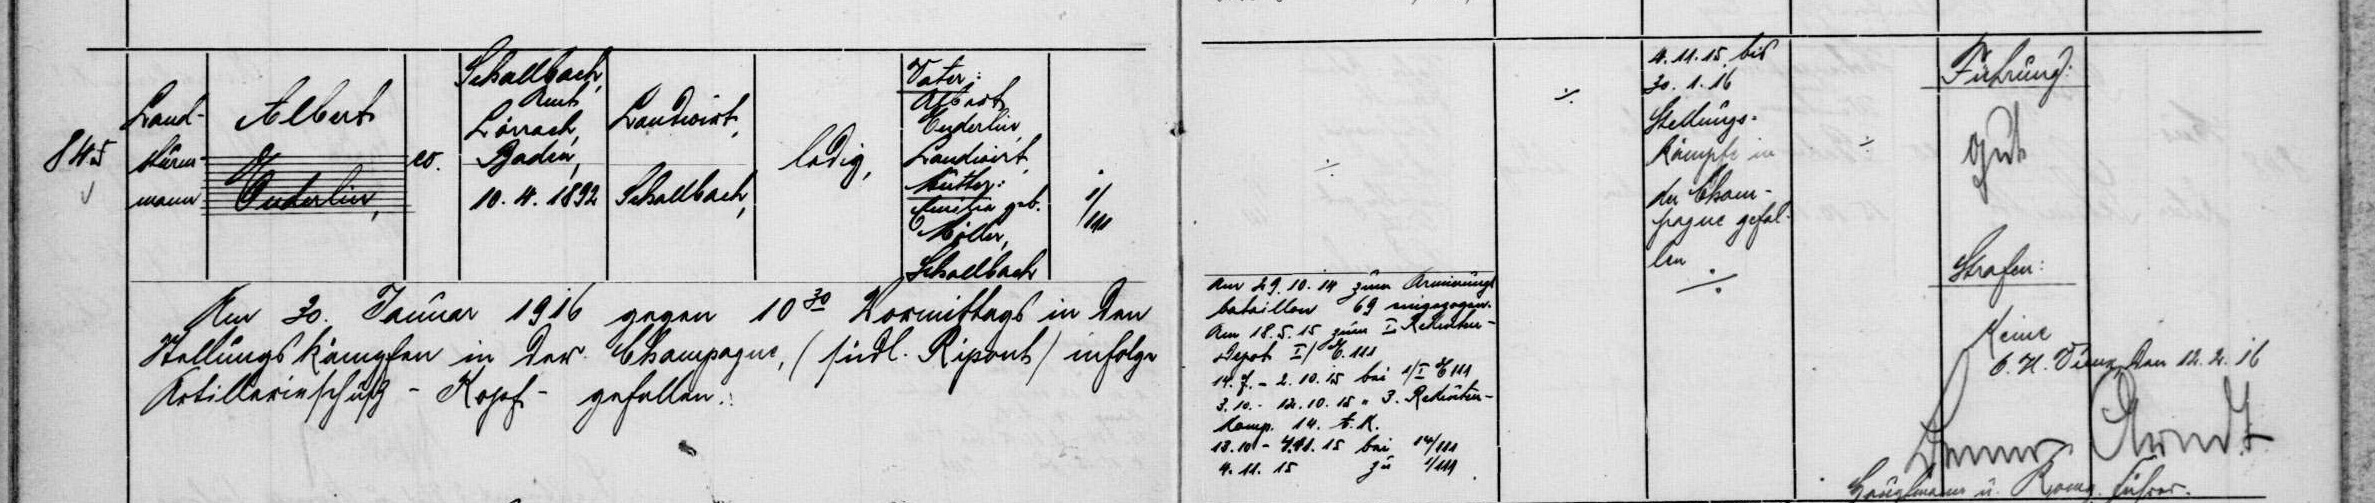 845
Land-
sturm-
mann
Albert
Enderlin,
ev.
Schallbach,
Amt
Lörrach,
Baden,
10. 4. 1892
Landwirt,
Schallbach,
ledig,
Vater:
Albert
Enderlin,
Landwirt,
Mutter:
Emilia geb.
Müller,
Schallbach
1/111
Am 30. Januar 1916 gegen 10 30 Vormittags in den
Stellungskämpfen in der Champagne, (südl. Ripont) infolge
Artillerieschuß - Kopf - gefallen.
Am 29.10.14 zum Armierungs
bataillon 69 eingezogen.
Am 18.5.15 zum I. Rekruten-
Depot I/E.111
14.7. - 2.10.15 bei 1/I E 111
3.10. - 12.10.15 " 3. Rekruten-
Komp. 14. A.K.
13.10 - 4.11.15 bei 14/111
4.11.15 zu 1/111
÷
÷
4.11.15. bis
30.1.16
Stellungs-
kämpfe in
der Cham-
pagne gefal-
len
÷
÷
Führung:
gut
Strafen:
Keine
O. U. den 12.2.16
Arndt
Hauptmann u. Komp. führer.